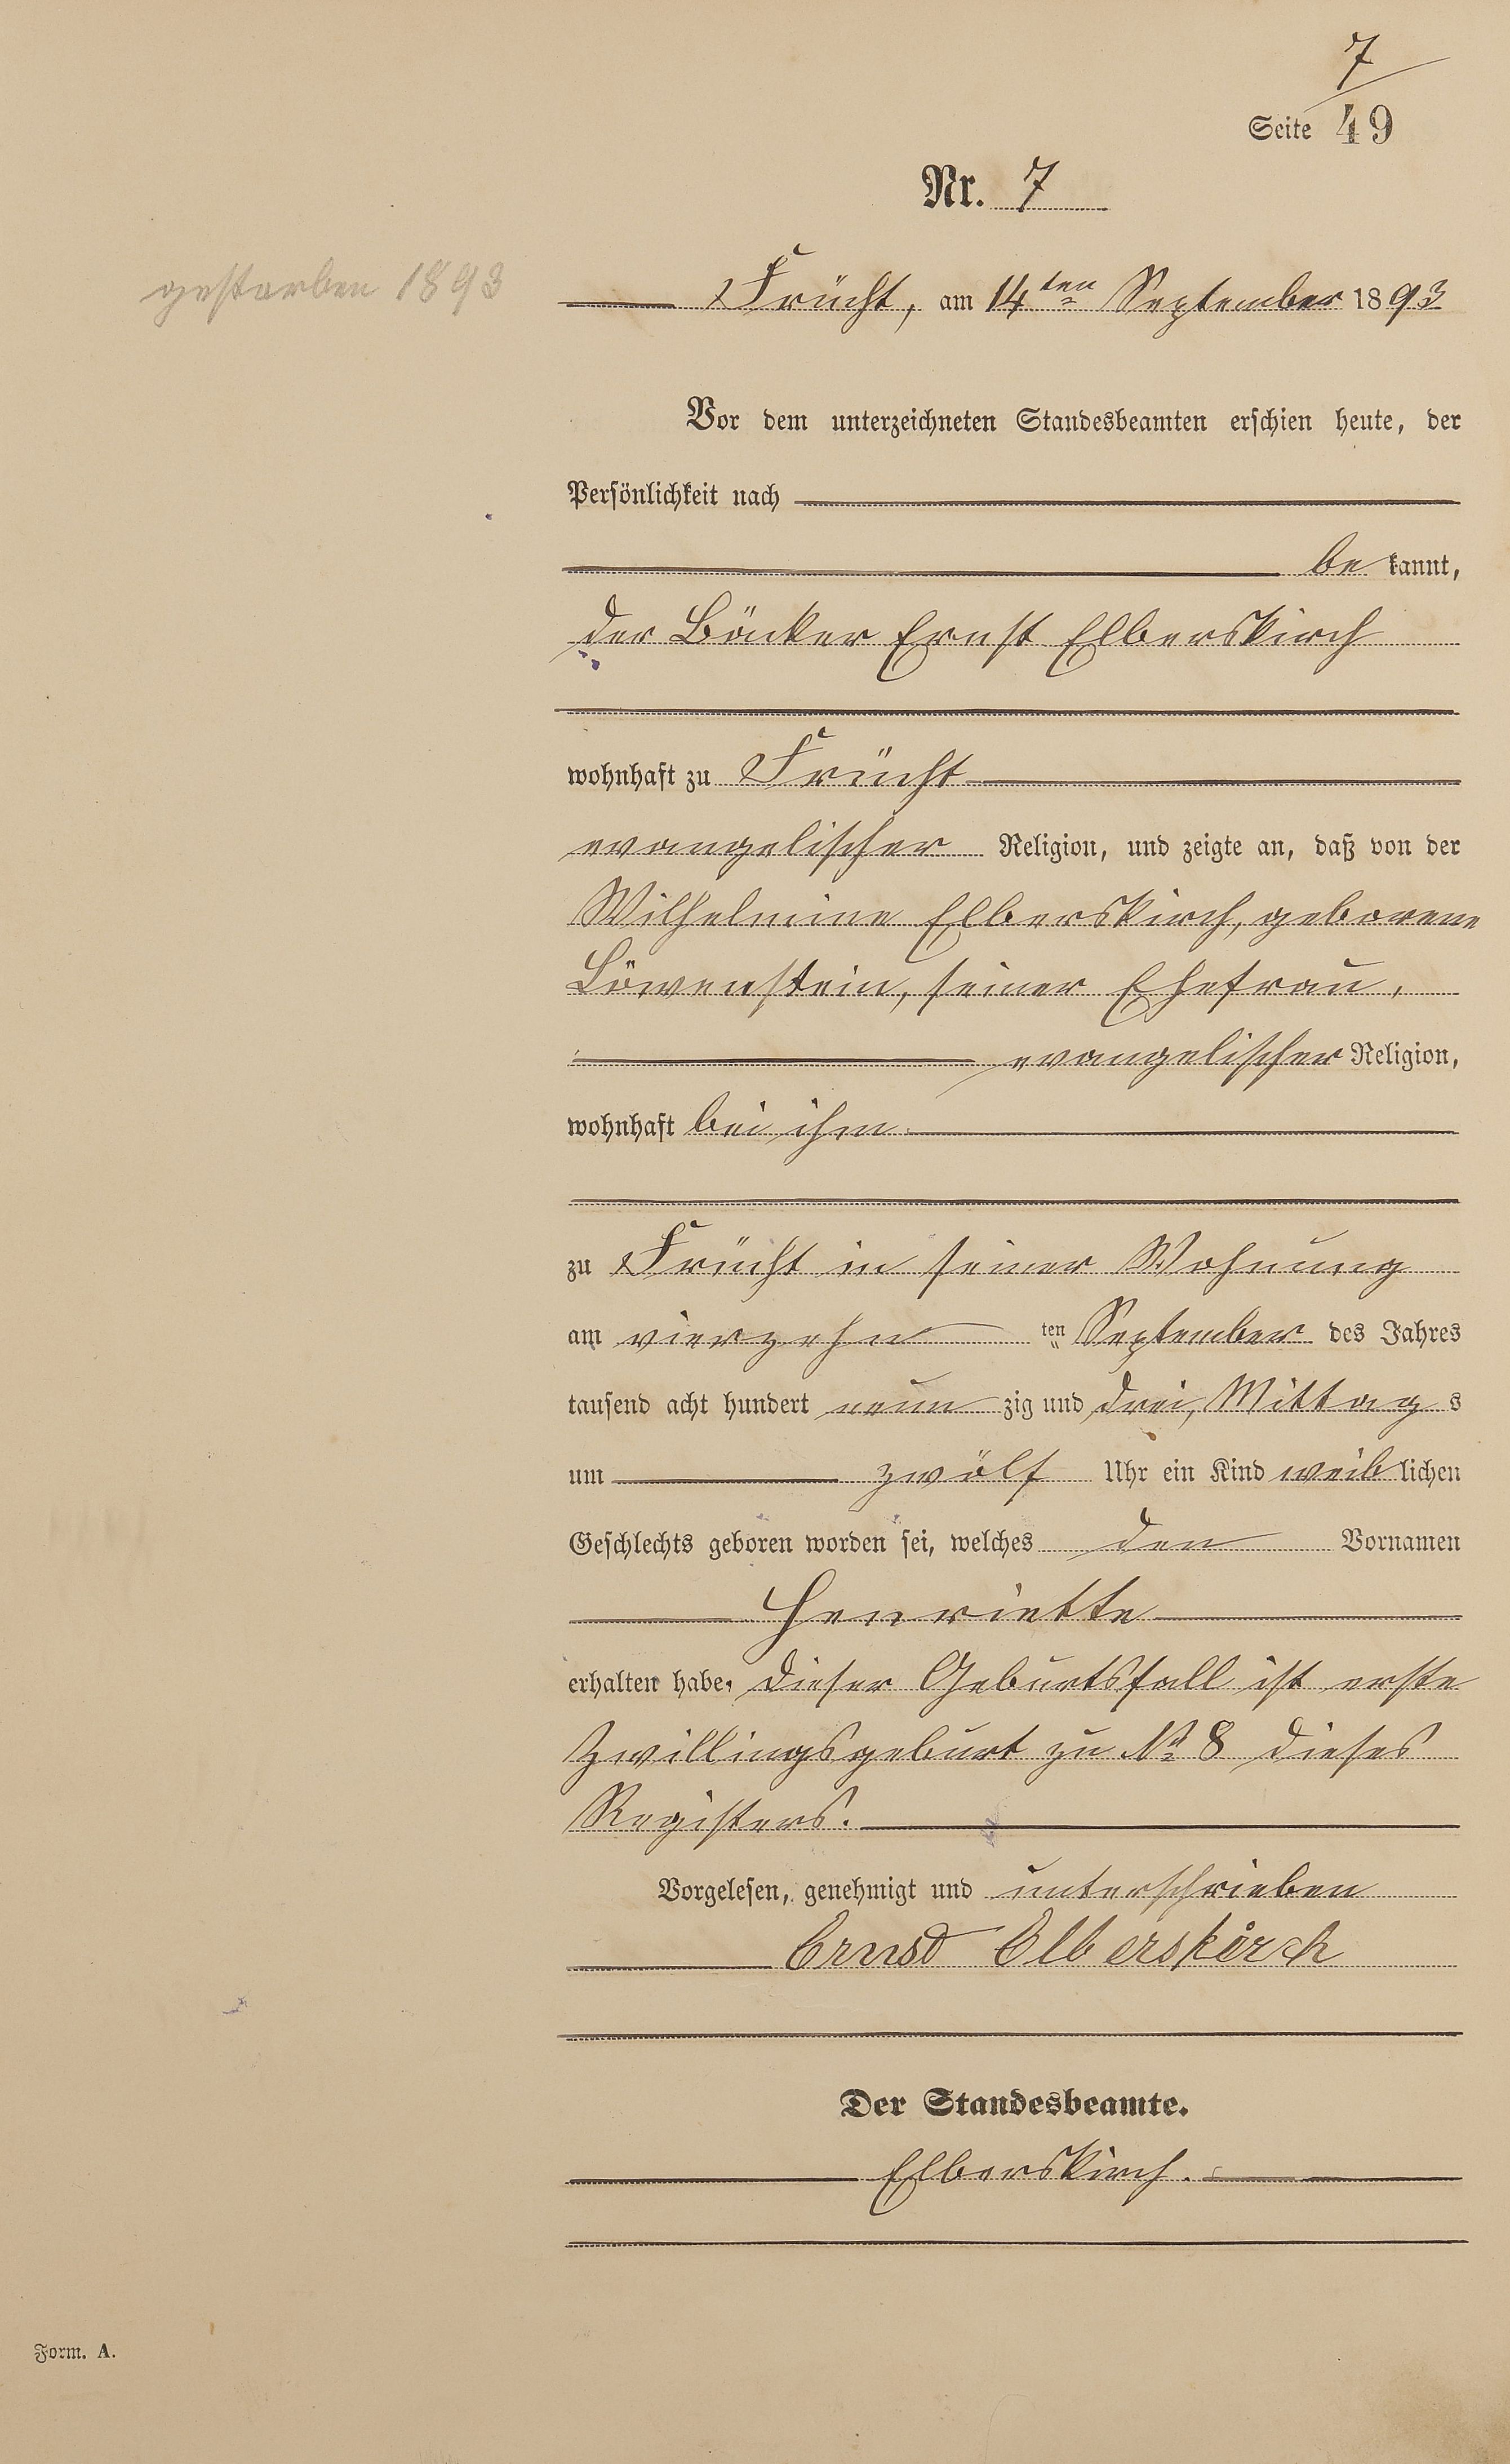 7
Seite 49
Nr. 7
gestorben 1893
Frücht, am 14ten September 1893
Vor dem unterzeichneten Standesbeamten erschien heute, der
Persönlichkeit nach
be kannt,
der Bäcker Ernst Elberskirch
wohnhaft zu Frücht
evangelischer Religion, und zeigte an, daß von der
Wilhelmine Elberskirch, geborene
Löwenstein, seiner Ehefrau,
evangelischer Religion,
wohnhaft bei ihm
zu Frücht in seiner Wohnung
am vierzehn ten September des Jahres
tausend acht hundert neun zig und drei, Mittag s
um zwölf Uhr ein Kind weib lichen
Geschlechts geboren worden sei, welches den Vornamen
Henriette
erhalten habe. Dieser Geburtsfall ist erste
Zwillingsgeburt zu № 8 dieses
Registers.
Vorgelesen, genehmigt und unterschrieben
Ernst Elberskirch
Der Standesbeamte.
Elberskirch.
Form. A.